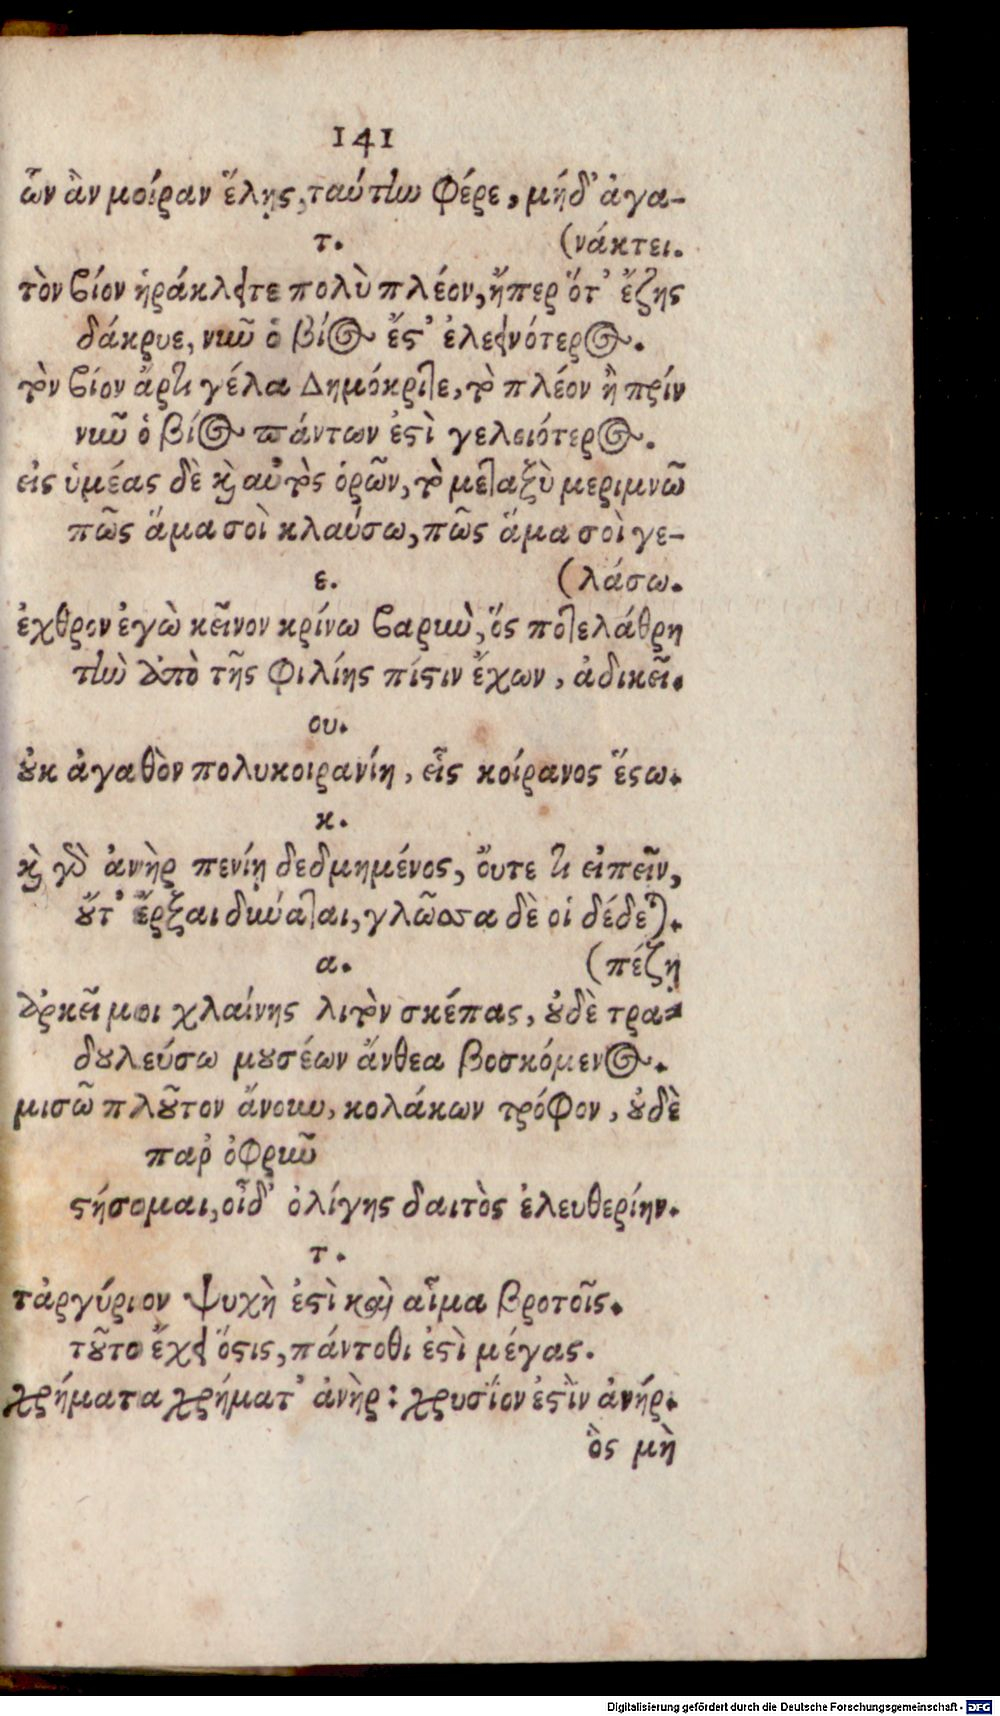 141
ὧν ἂν μοίραν ἕλῃς, ταύτην φέρε, μήδ' ἀγα-
τ. (νάκτει.
τὸν βίον ἡράκλειτε πολὺ πλέον, ἤπερ ὅτ' ἔζης
δάκρυε, νῦν ὁ βίος ἔς' ἐλεεινότερος.
τὸν βίον ἄρτι γέλα Δημόκριτε, τὸ πλέον ἢ πρίν
νῦν ὁ βίος πάντων ἐςὶ γελειότερος.
εἰς ὑμέας δὲ καὶ αὐτὸς ὁρῶν, τὸ μεταξὺ μεριμνῶ
πῶς ἅμα σοὶ κλαύσω, πῶς ἅμα σοὶ γε-
ε. (λάσω.
ἐχθρον ἐγὼ κεῖνον κρίνω βαρὺν, ὅς ποτε λάθρη
τὴν ἀπὸ τῆς φιλίης πίςιν ἔχων, ἀδικεῖ.
ου.
οὐκ ἀγαθὸν πολυκοιρανίη, εἷς κοίρανος ἔςω.
κ.
καὶ γὰρ ἀνὴρ πενίῃ δεδμημένος, ὄυτε τι εἰπεῖν,
οὔτ' ἔρξαι δύναται, γλῶσσα δὲ οἱ δέδεται.
α. (πέζῃ
ἀρκεῖ μοι χλαίνης λιτὸν σκέπας, οὐδὲ τρα-
δουλεύσω μουσέων ἄνθεα βοσκόμενος.
μισῶ πλοῦτον ἄνουν, κολάκων τρόφον, οὐδὲ
παρ' ὀφρῦν
ςήσομαι, οἶδ' ὀλίγης δαιτὸς ἐλευθερίην.
τ.
τἀργύριον ψυχὴ ἐςὶ καὶ αἷμα βροτοῖς.
τοῦτο ἔχει ὅςις, πάντοθι ἐςὶ μέγας.
χρήματα χρήματ' ἀνὴρ: χρυσἴον ἐςὶν ἀνήρ.
ὃς μὴ
Digitalisierung gefördert durch die Deutsche Forschungsgemeinschaft - DFG